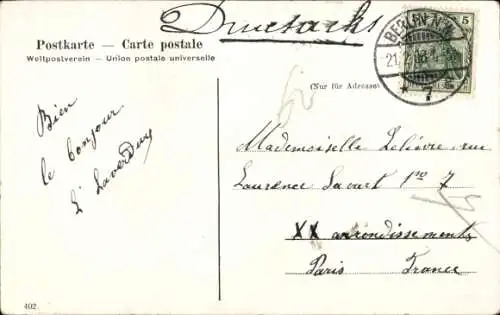 Drucksache
Postkarte — Carte postale
Weltpostverein — Union postale universelle
BERLIN N.W.
5
21.2.08
* 7 *
(Nur für Adresse)
Bien
le bonjour
Mademoiselle Lelièvre, rue
Laurence Savart 1bis 7
XX arrondissements
Paris France
402.